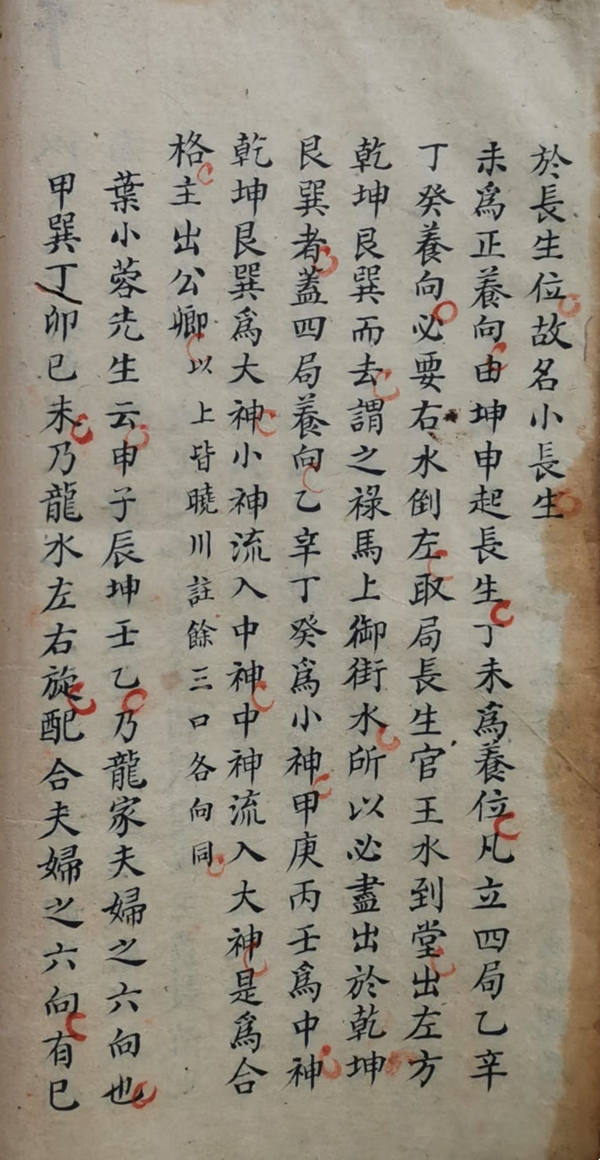 於長生位故名小長生
未為正養向由坤申起長生丁未為養位凡立四局乙辛
丁癸養向必要右水倒左取局長生官王水到堂出左方
乾坤艮巽而去謂之祿馬上御街水所以必盡出於乾坤
艮巽者蓋四局養向乙辛丁癸為小神甲庚丙壬為中神
乾坤艮巽為大神小神流入中神中神流入大神是為合
格主出公卿以上皆曉川註餘三口各向同
葉小蓉先生云申子辰坤壬乙乃龍家夫婦之六向也
甲巽丁卯巳未乃龍水左右旋配合夫婦之六向有巳